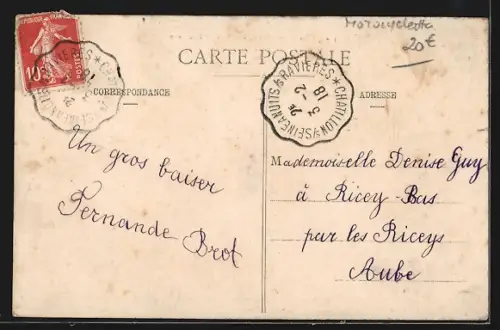 Motocyclette
20€
CARTE POSTALE
CORRESPONDANCE
ADRESSE
10c
POSTES
CHATILLON S/SEINE A NUITS S/RAVIERES
2E
18
3
22
Un gros baiser
Fernande Brot
Mademoiselle Denise Guy
à Ricey-Bas
par les Riceys
Aube